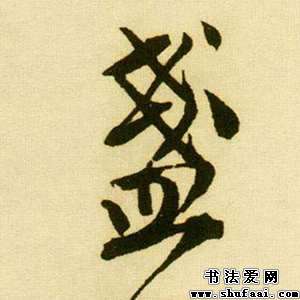 盏
书法爱网
www.shufaai.com